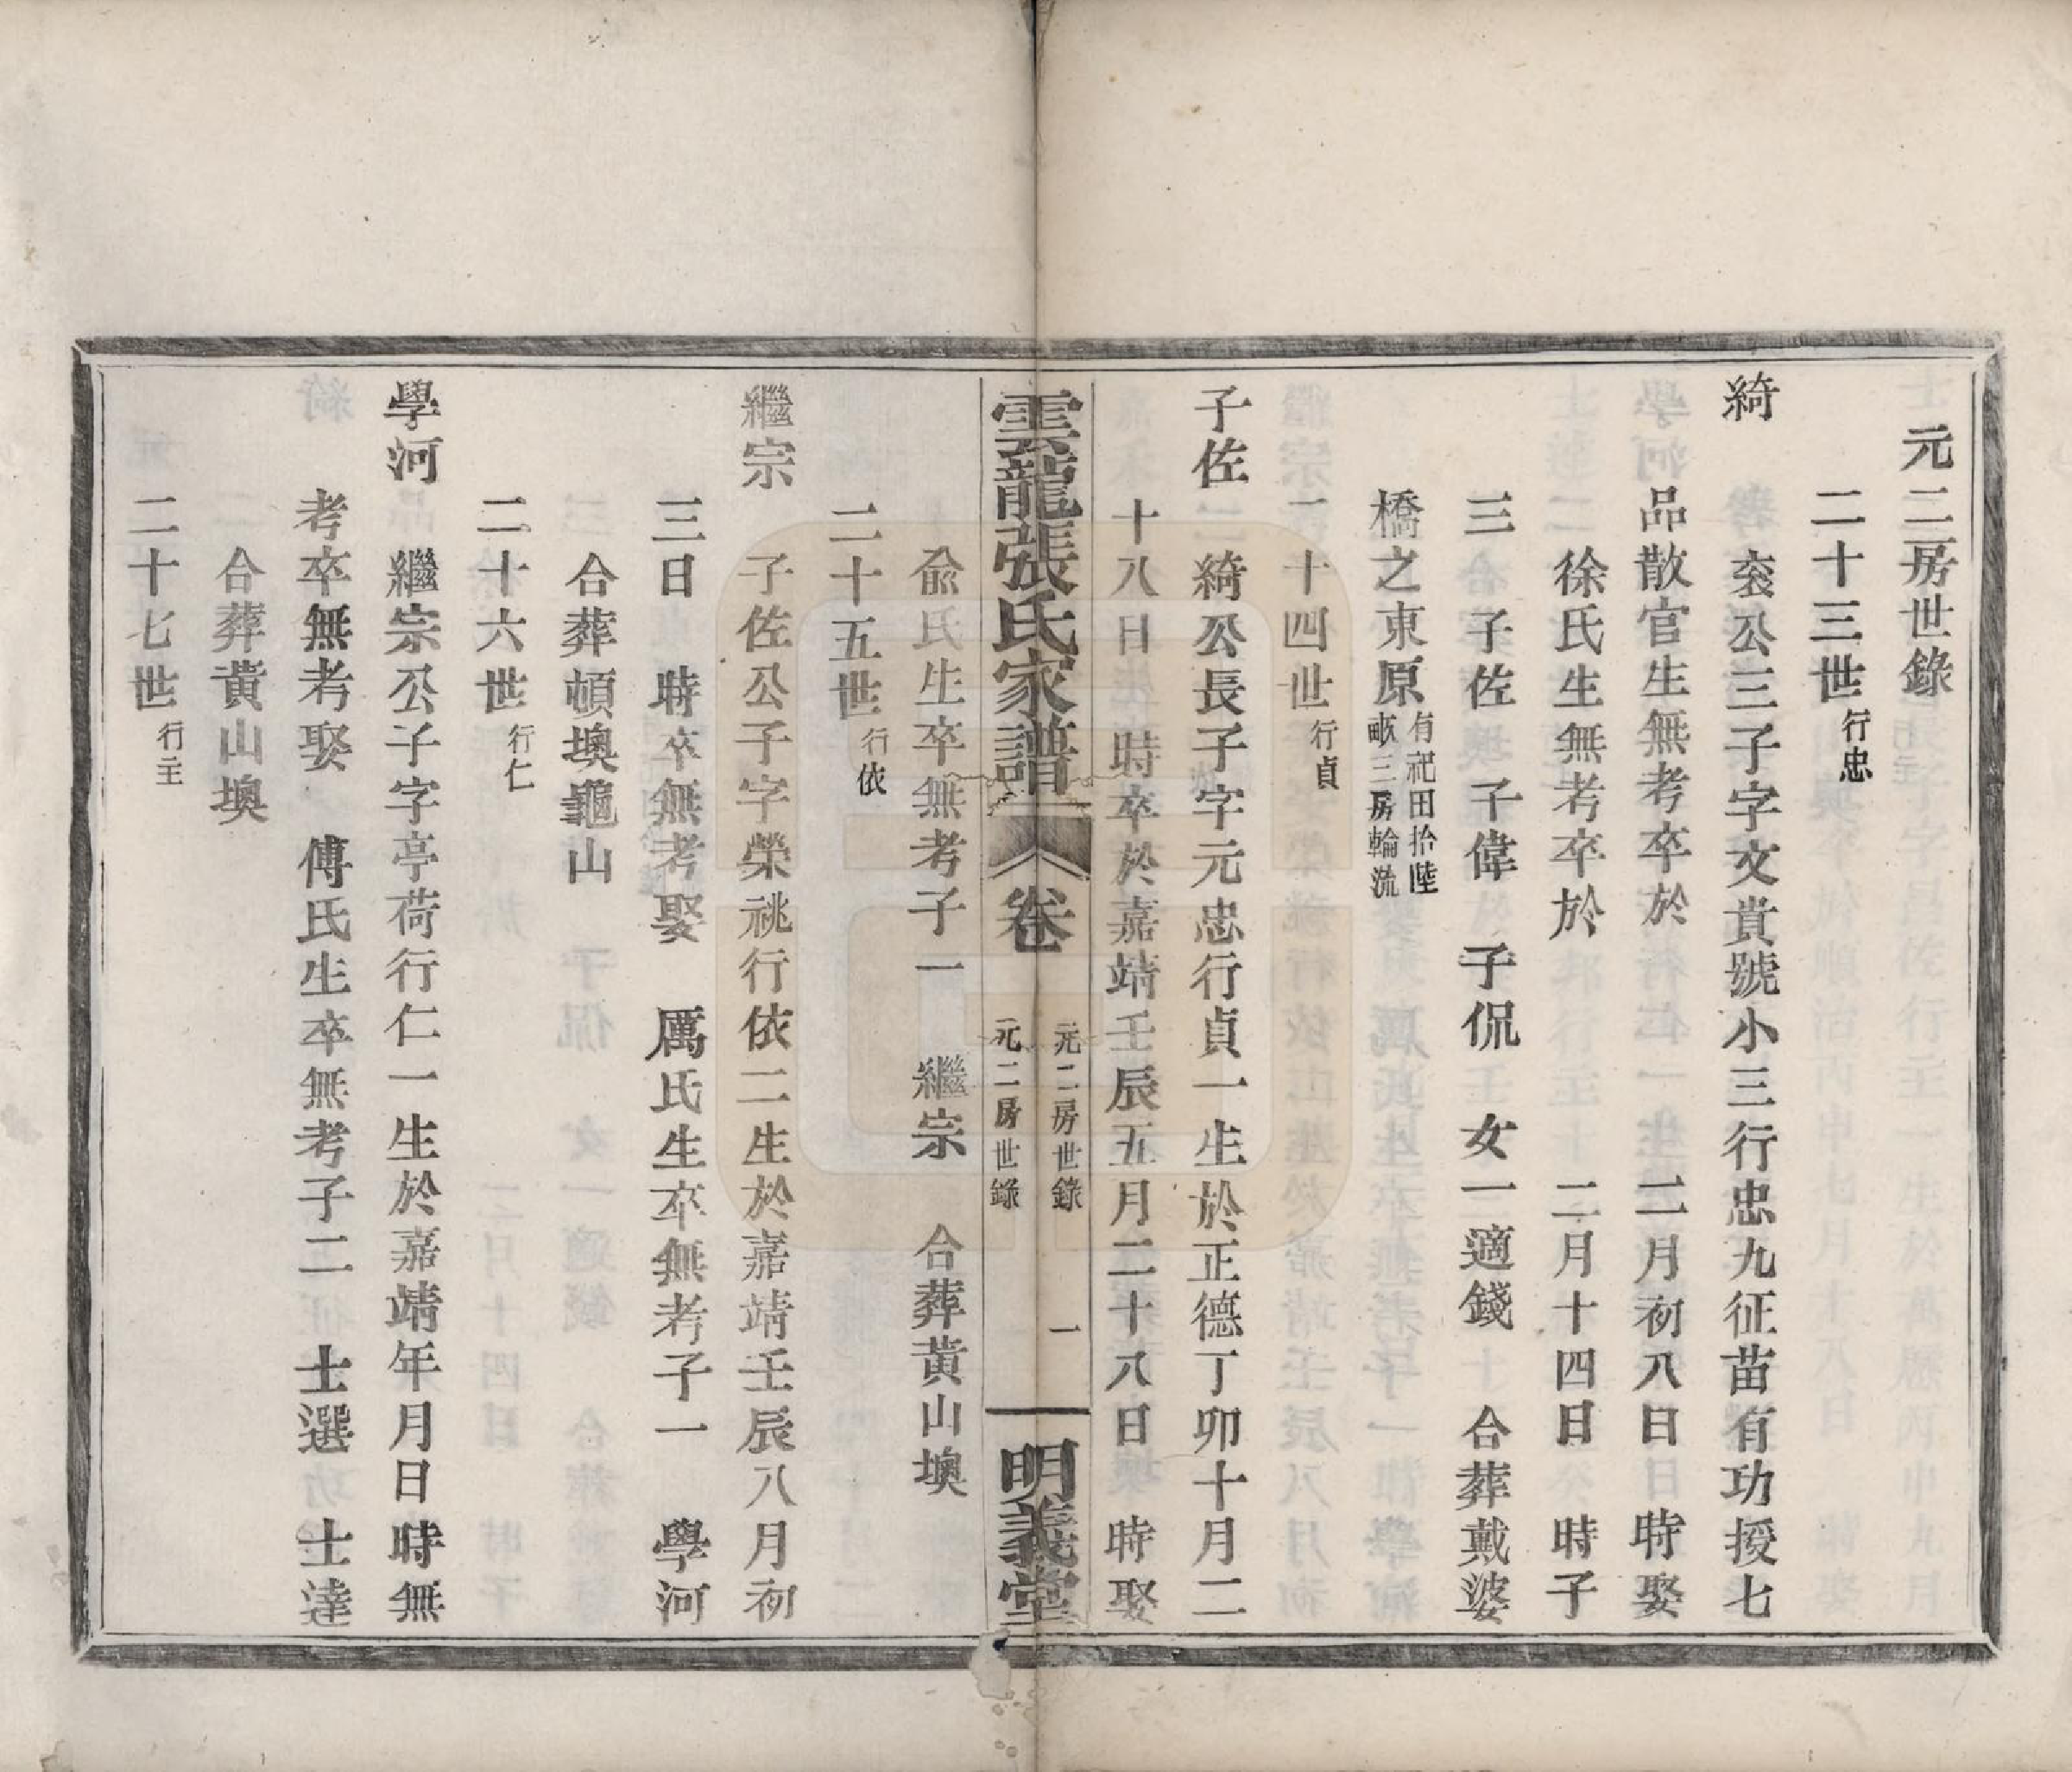 元二房世錄
二十三世行忠
綺 袞公三子字文貴號小三行忠九征苗有功授七
品散官生無考卒於 二月初八日 時娶
徐氏生無考卒於 二月十四日 時子
三 子佐 子偉 子侃 女一適錢 合葬戴婆
橋之東原有祀田拾陸畝三房輪流
二十四世行貞
子佐 綺公長子字元忠行貞一生於正德丁卯十月二
十八日 時卒於嘉靖壬辰五月二十八日 時娶
俞氏生卒無考子一 繼宗 合葬黃山墺
雲龍張氏家譜 卷 元二房世錄 元二房世錄 一 明義堂
二十五世行依
繼宗 子佐公子字榮祧行依二生於嘉靖壬辰八月初
三日 時卒無考娶 厲氏生卒無考子一 學河
合葬頓墺龜山
二十六世行仁
學河 繼宗公子字亭荷行仁一生於嘉靖年月日時無
考卒無考娶 傅氏生卒無考子二 士選 士達
合葬黃山墺
二十七世行主